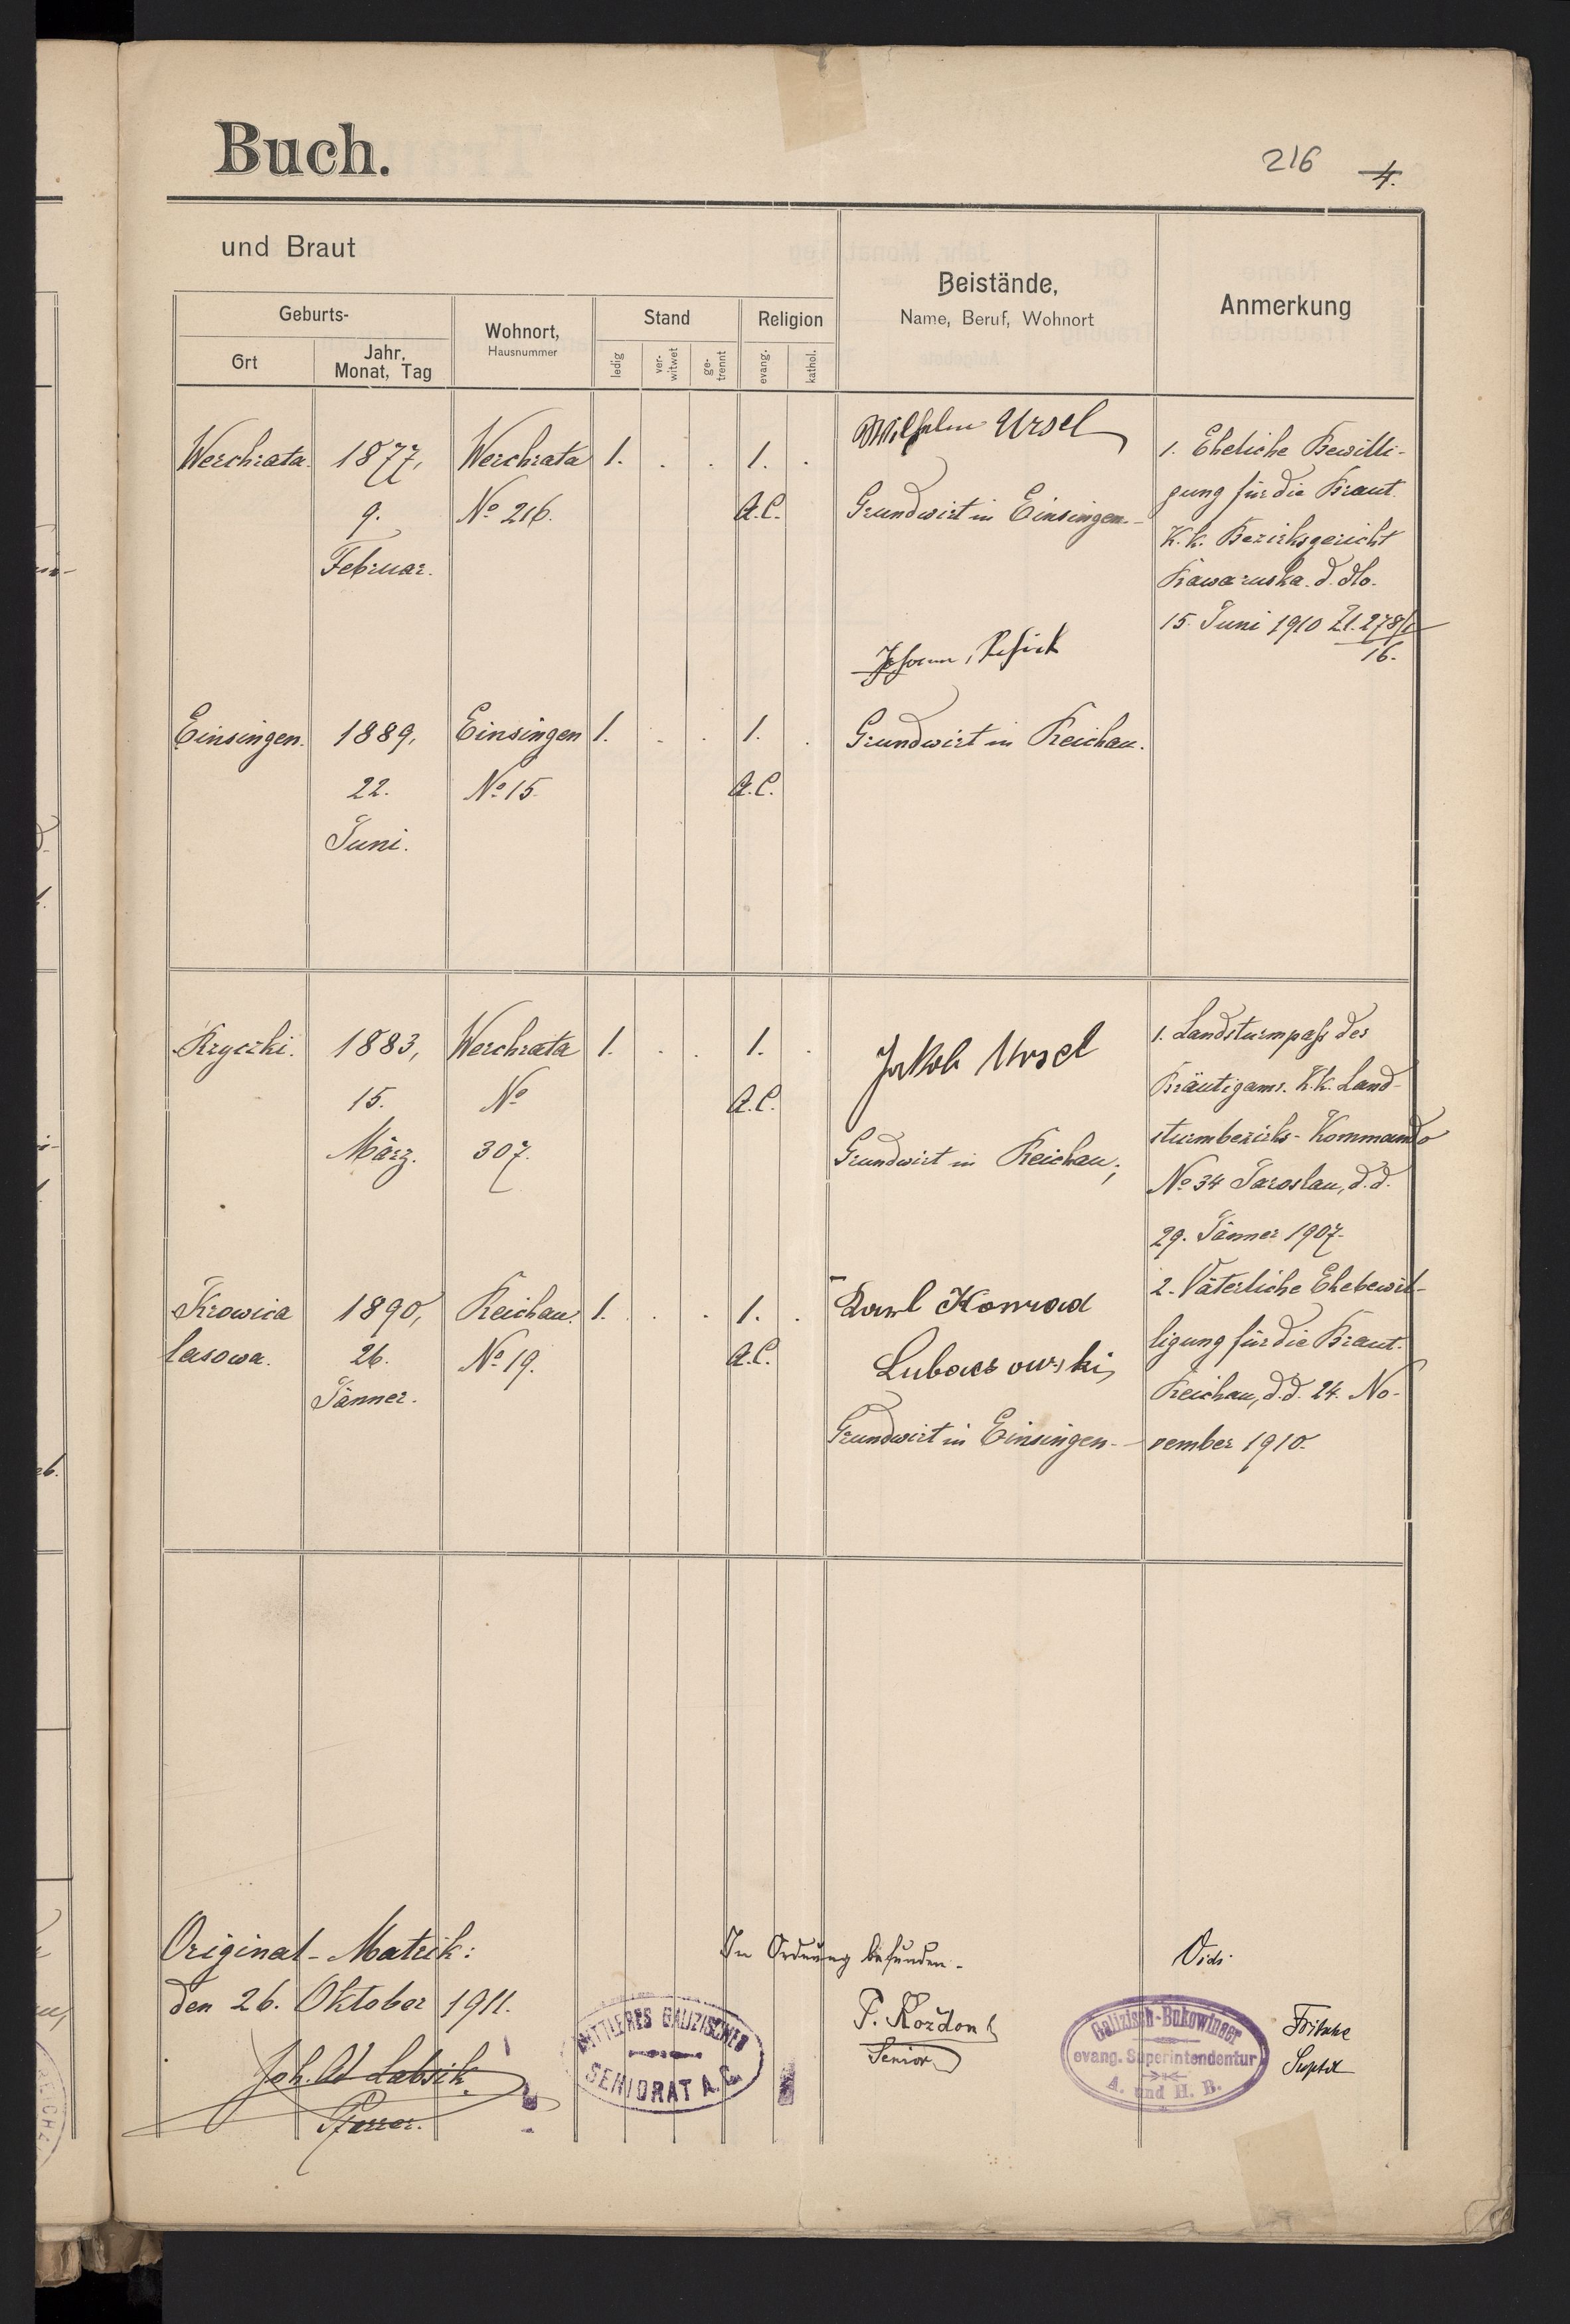 Buch.
216 4.
und Braut
Geburts-
Ort
Jahr,
Monat, Tag
Wohnort,
Hausnummer
Stand
ledig
ver-
witwet
ge-
trennt
Religion
evang.
kathol.
Beistände,
Name, Beruf, Wohnort
Anmerkung
Werchrata.
1877,
9.
Februar.
Werchrata
No 216.
1. . .
1. .
A.C.
Wilhelm Ursel
Grundwirt in Einsingen.-
Johann
1. Eheliche Bewilli-
gung für die Braut.
K. k. Bezirksgericht
Rawa ruska. d. dto.
15. Juni 1910 Zl. 278/1
16.
Einsingen.
1889,
22.
Juni.
Einsingen
No 15.
1. . .
1. .
A.C.
Grundwirt in Reichau.
Kryczki.
1883,
15.
März.
Werchrata
No
307.
1. . .
1. .
A.C.
Jakob Ursel
Grundwirt in Reichau;
1. Landsturmpaß des
Bräutigams. K. k. Land-
sturmbezirks-Kommando
No 34 Jaroslau, d. d.
29. Jänner 1907.
Krowica
lasowa.
1890,
26.
Jänner.
Reichau.
No 19.
1. . .
1. .
A.C.
Karl Konrad
Lubaczowski,
Grundwirt in Einsingen.-
2. Väterliche Ehebewil-
ligung für die Braut.
Reichau, d. d. 24. No-
vember 1910.
Original-Matrik:
den 26. Oktober 1911.
Pfarrer.
MITTLERES GALIZISCHES
SENIORAT A. C.
In Ordnung befunden.
Senior
Vidi
Galizisch-Bukowinaer
evang. Superintendentur
A. und H. B.
Fritsche
Suptdt